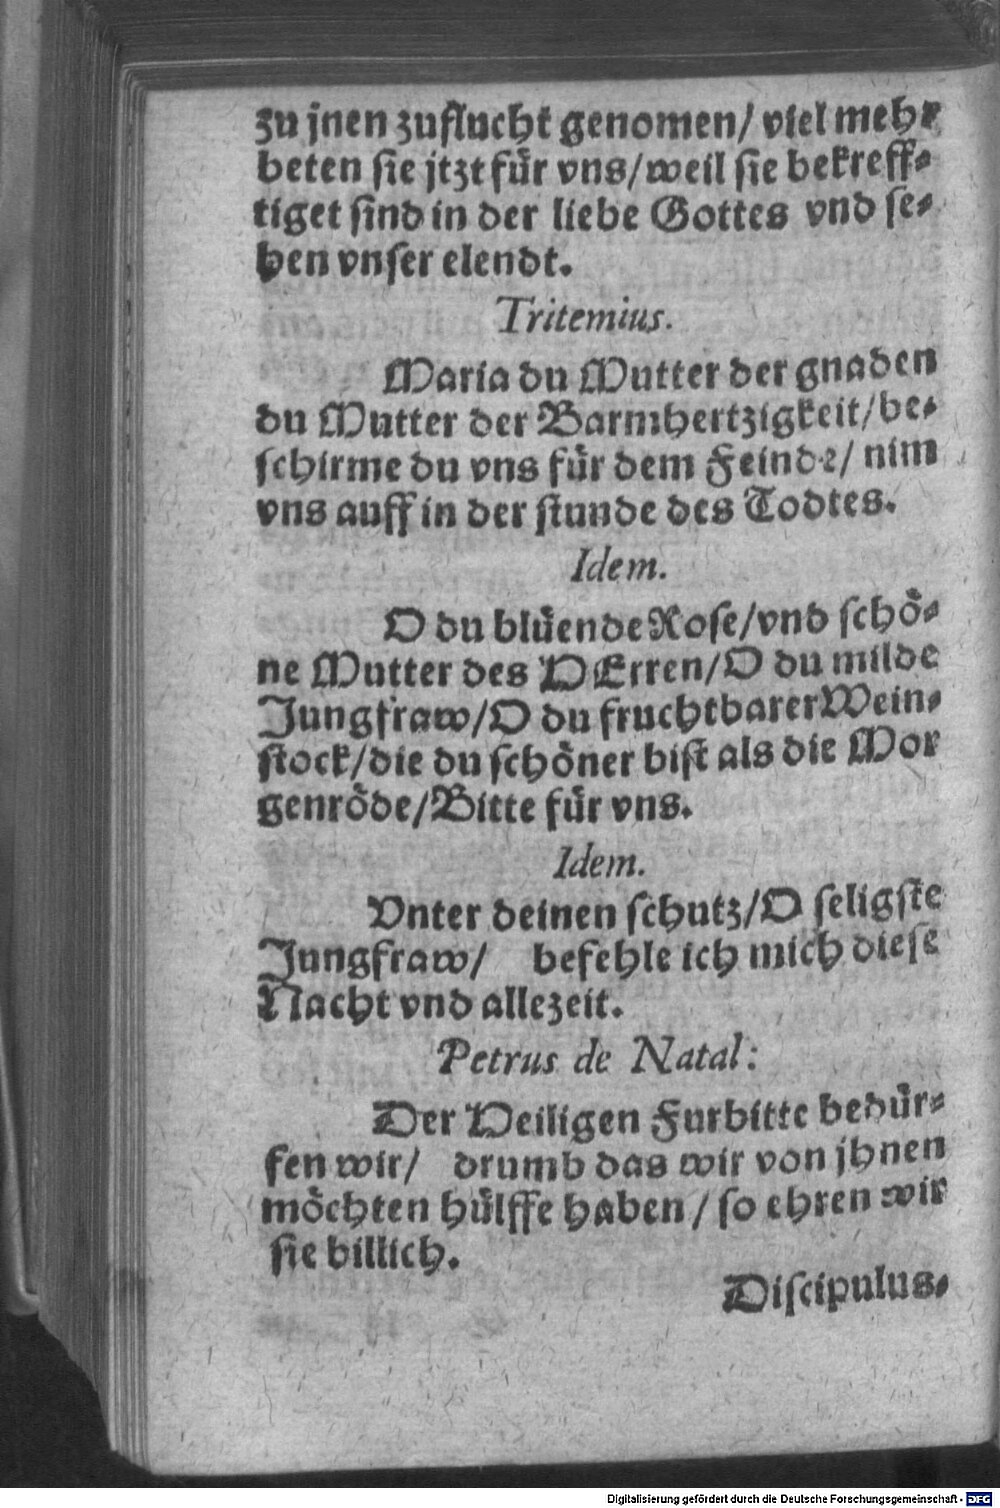 zu jnen zuflucht genomen/ viel mehr
beten sie jtzt fuͤr vns/weil sie bekreff-
tiget sind in der liebe Gottes vnd se-
hen vnser elendt.
Tritemius.
Maria du Mutter der gnaden
du Mutter der Barmhertzigkeit/be-
schirme du vns fuͤr dem Feinde/ nim
vns auff in der stunde des Todtes.
Idem.
O du bluͤende Rose/vnd schoͤ-
ne Mutter des HErren/O du milde
Jungfraw/O du fruchtbarer Wein-
stock/die du schoͤner bist als die Mor
genroͤde/Bitte fuͤr vns.
Idem.
Vnter deinen schutz/O seligste
Jungfraw/ befehle ich mich diese
Nacht vnd allezeit.
Petrus de Natal:
Der Heiligen Furbitte beduͤr-
fen wir/ drumb das wir von jhnen
moͤchten huͤlffe haben/ so ehren wir
sie billich.
Discipulus.
Digitalisierung gefördert durch die Deutsche Forschungsgemeinschaft - DFG